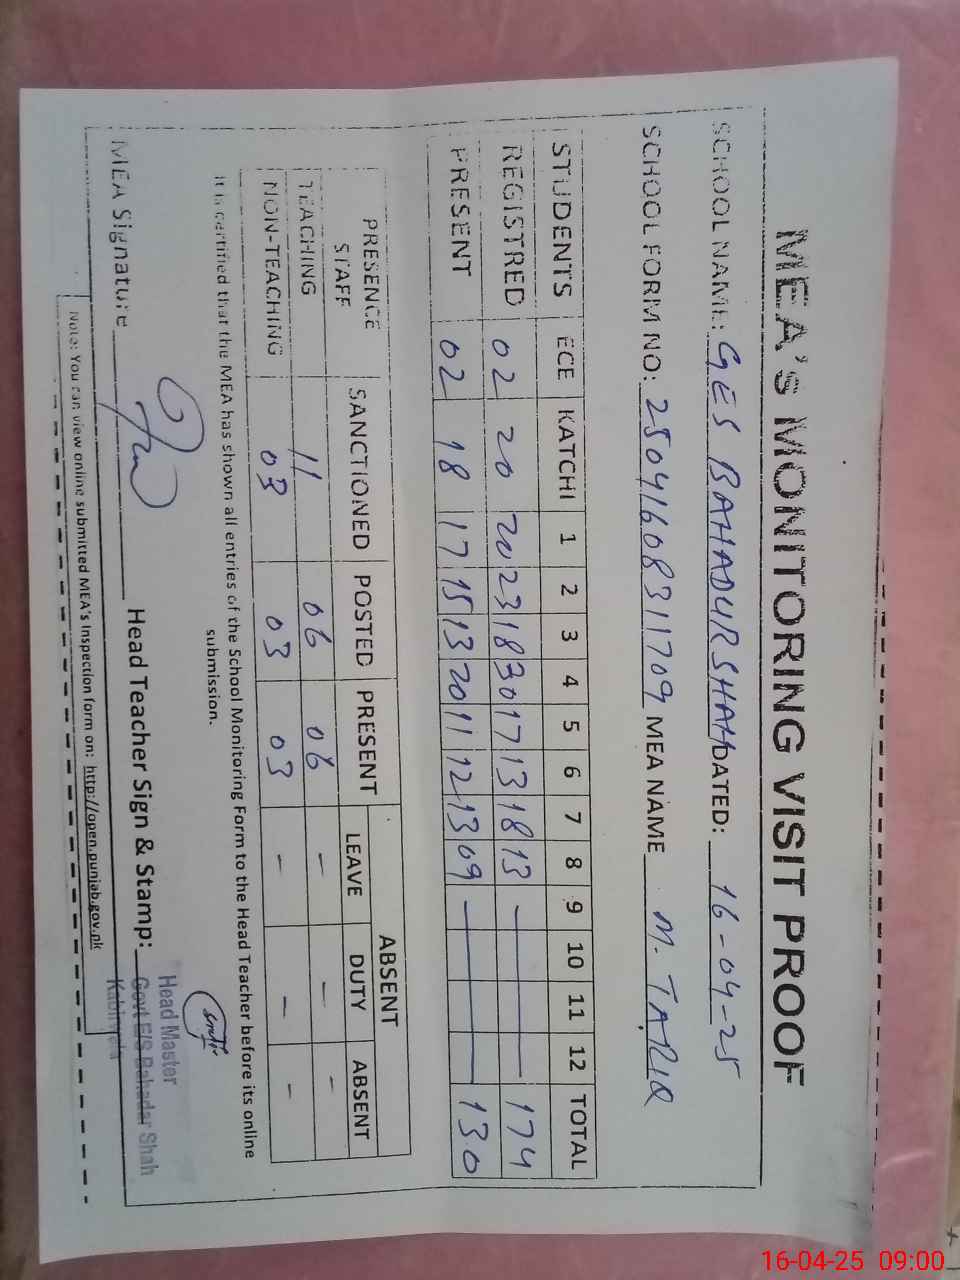 MEA'S MONITORING VISIT PROOF
SCHOOL NAME: GES BAHADUR SHAH DATED: 16-04-25
SCHOOL FORM NO: 25041608311709 MEA NAME M. TARIQ
STUDENTS ECE KATCHI 1 2 3 4 5 6 7 8 9 10 11 12 TOTAL
REGISTRED 02 20 20 23 18 30 17 13 18 13 — 174
PRESENT 02 18 17 15 13 20 11 12 13 09 — 130
PRESENCE STAFF SANCTIONED POSTED PRESENT ABSENT
LEAVE DUTY ABSENT
TEACHING 11 06 06 - - -
NON-TEACHING 03 03 03 - - -
It is certified that the MEA has shown all entries of the School Monitoring Form to the Head Teacher before its online
submission.
MEA Signature Head Teacher Sign & Stamp:
Head Master
Govt E/S Bahadar Shah
Kabirwala
Note: You can view online submitted MEA's Inspection form on: http://open.punjab.gov.pk
16-04-25 09:00